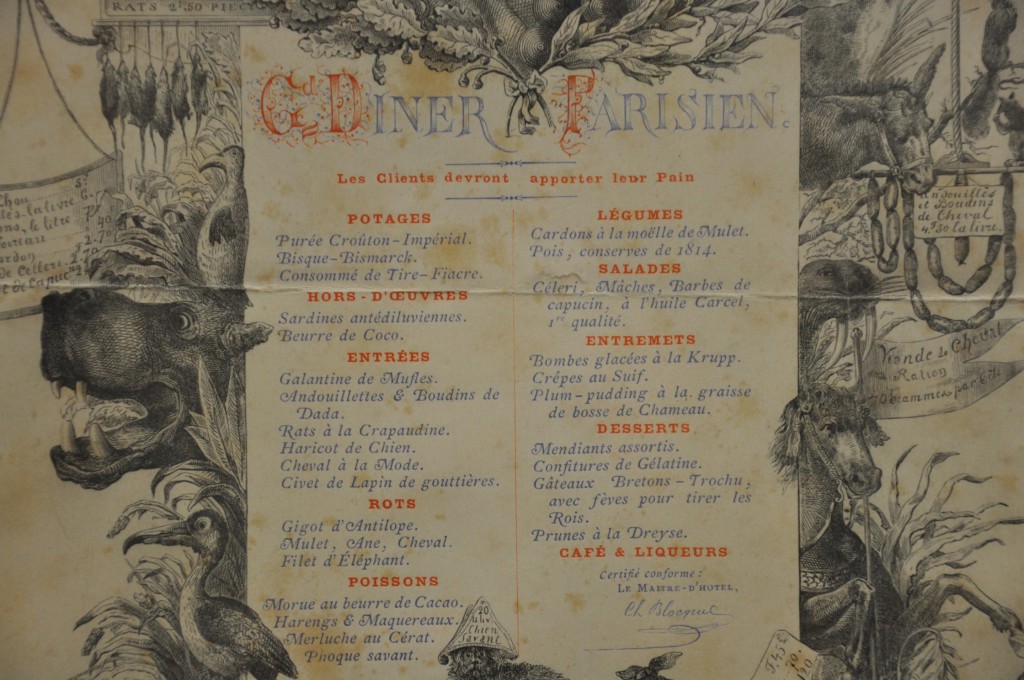 RATS 2f.50 PIECE
Gd DINER PARISIEN.
Les Clients devront apporter leur Pain
POTAGES
Purée Croûton-Impérial.
Bisque-Bismarck.
Consommé de Tire-Fiacre.
HORS-D'ŒUVRES
Sardines antédiluviennes.
Beurre de Coco.
ENTRÉES
Galantine de Mufles.
Andouillettes & Boudins de
Dada.
Rats à la Crapaudine.
Haricot de Chien.
Cheval à la Mode.
Civet de Lapin de gouttières.
ROTS
Gigot d'Antilope.
Mulet, Ane, Cheval.
Filet d'Éléphant.
POISSONS
Morue au beurre de Cacao.
Harengs & Maquereaux.
Merluche au Cérat.
Phoque savant.
LÉGUMES
Cardons à la moëlle de Mulet.
Pois, conserves de 1814.
SALADES
Céleri, Mâches, Barbes de
capucin, à l'huile Carcel,
1re qualité.
ENTREMETS
Bombes glacées à la Krupp.
Crêpes au Suif.
Plum-pudding à la graisse
de bosse de Chameau.
DESSERTS
Mendiants assortis.
Confitures de Gélatine.
Gâteaux Bretons-Trochu,
avec fèves pour tirer les
Rois.
Prunes à la Dreyse.
CAFÉ & LIQUEURS
Certifié conforme:
LE MAITRE-D'HOTEL,
Chou
la livre
le litre
de Celleri
Andouilles
et Boudins
de Cheval
4f.50 la livre.
Viande de Cheval
Ration
20
Chien
Savant